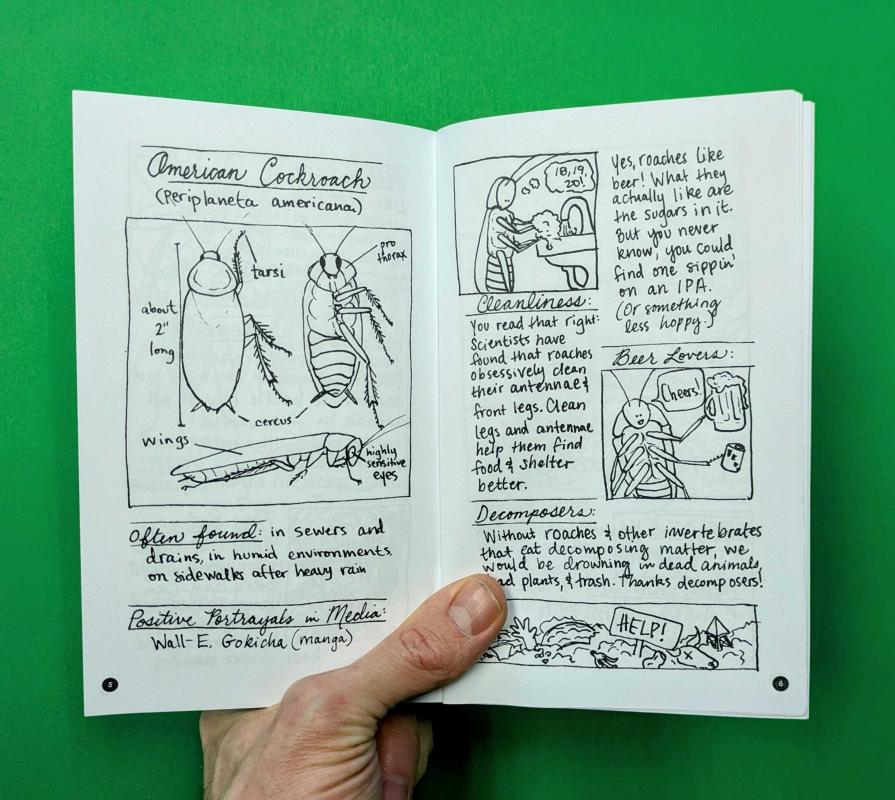 American Cockroach
(Periplaneta americana)
tarsi
pro
thorax
about
2"
long
cercus
wings
highly
sensitive
eyes
Often found: in sewers and
drains, in humid environments,
on sidewalks after heavy rain
Positive Portrayals in Media:
Wall-E, Gokicha (manga)
5
18, 19,
20!
Cleanliness:
You read that right:
Scientists have
found that roaches
obsessively clean
their antennae &
front legs. Clean
legs and antennae
help them find
food & shelter
better.
Yes, roaches like
beer! What they
actually like are
the sugars in it.
But you never
know, you could
find one sippin'
on an IPA.
(Or something
less hoppy.)
Beer Lovers:
Cheers!
Decomposers:
Without roaches & other invertebrates
that eat decomposing matter, we
would be drowning in dead animals,
plants, & trash. Thanks decomposers!
HELP!
6